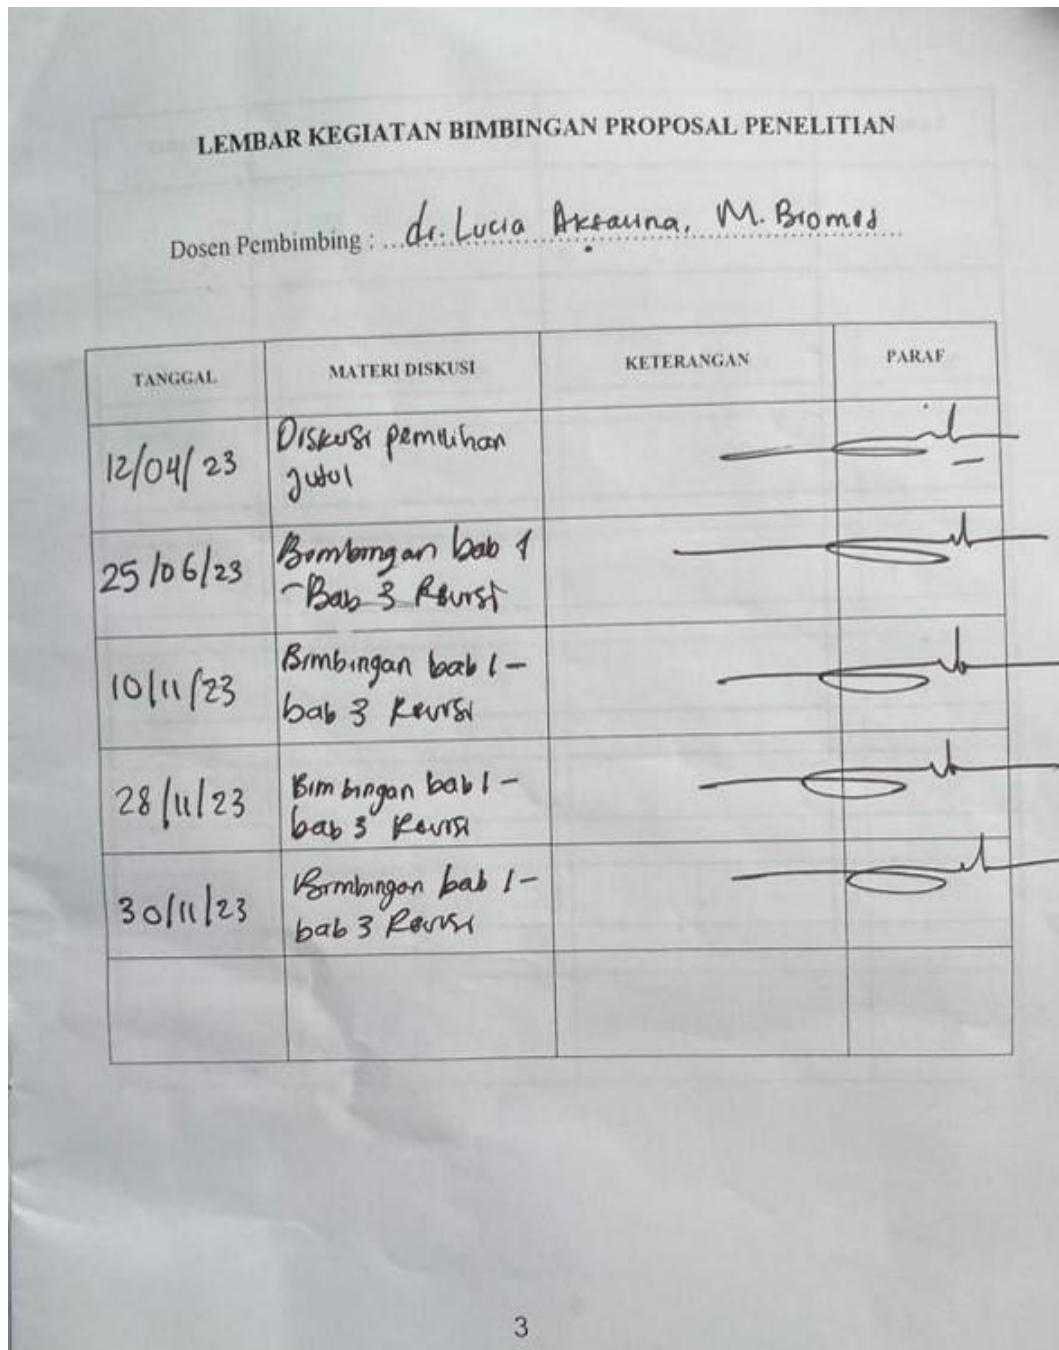 LEMBAR KEGIATAN BIMBINGAN PROPOSAL PENELITIAN
Dosen Pembimbing : dr. Lucia M. Biomed
TANGGAL MATERI DISKUSI KETERANGAN PARAF
12/04/23 Diskusi pemilihan
judul
25/06/23 Bimbingan bab 1
- Bab 3 Revisi
10/11/23 Bimbingan bab 1 -
bab 3 Revisi
28/11/23 Bimbingan bab 1 -
bab 3 Revisi
30/11/23 Bimbingan bab 1 -
bab 3 Revisi
3